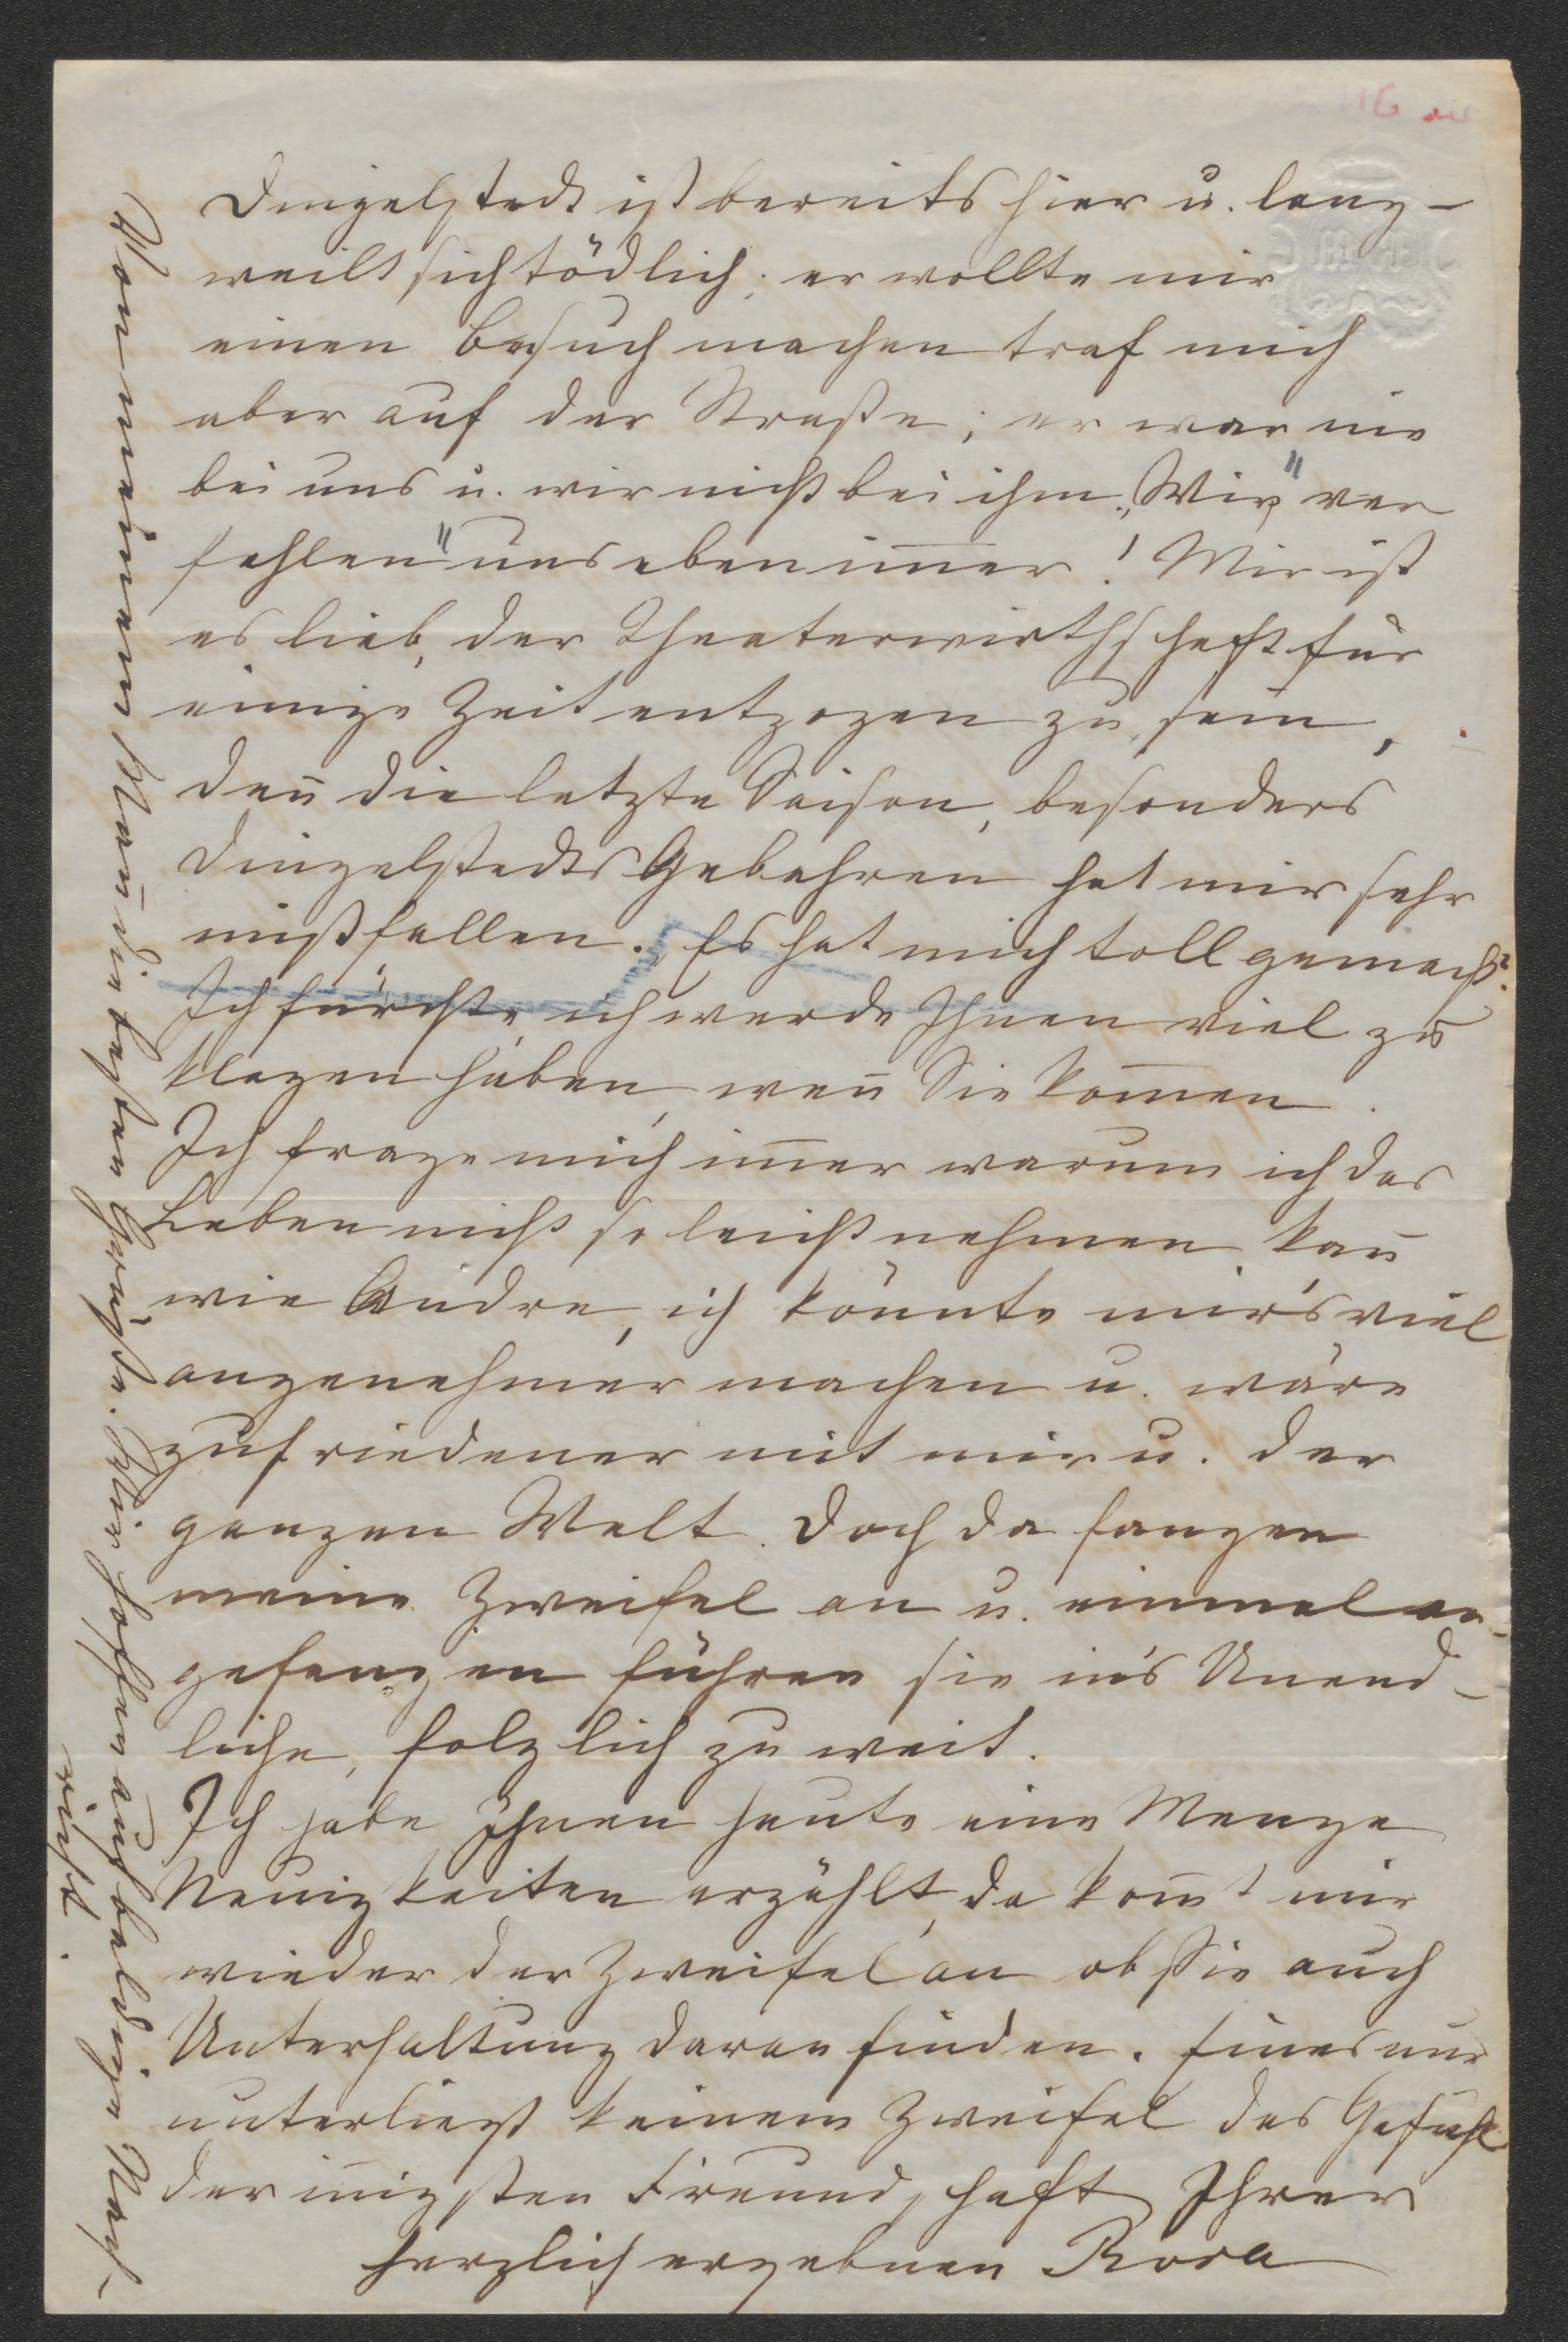 Dingelstedt ist bereits hier u. lang-
weilt sich tödlich; er wollte mir
einen Besuch machen traf mich
aber auf der Straße; er war nie
bei uns u. wir nicht bei ihm. „Wir" ver
fehlen" uns eben im̄er! Mir ist
es lieb, der Theaterwirthschaft für
einige Zeit entzogen zu sein,
den̄ die letzte Saison, besonders
Dingelstedts Gebahren hat mir sehr
mißfallen. Es hat mich toll gemacht.
Ich fürchte, ich werde Ihnen viel zu
klagen haben, wen̄ Sie kom̄en.
Ich frage mich im̄er warum ich das
Leben nicht so leicht nehmen kan̄
wie Andre, ich könnte mir's viel
angenehmer machen u. wäre
zufriedener mit mir u. der
ganzen Welt. Doch da fangen
meine Zweifel an u. einmal an-
gefangen führen sie in's Unend-
liche, folglich zu weit.
Ich habe Ihnen heute eine Menge
Neuigkeiten erzählt, da kom̄t mir
wieder der Zweifel an ob Sie auch
Unterhaltung daran finden. Eines nur
unterliegt keinem Zweifel das Gefühl
der in̄igsten Freundschaft Ihrer
herzlich ergebnen Rosa
Von meinem Man̄ die besten Grüße. Wir hoffen auf baldige Nach-
richt.